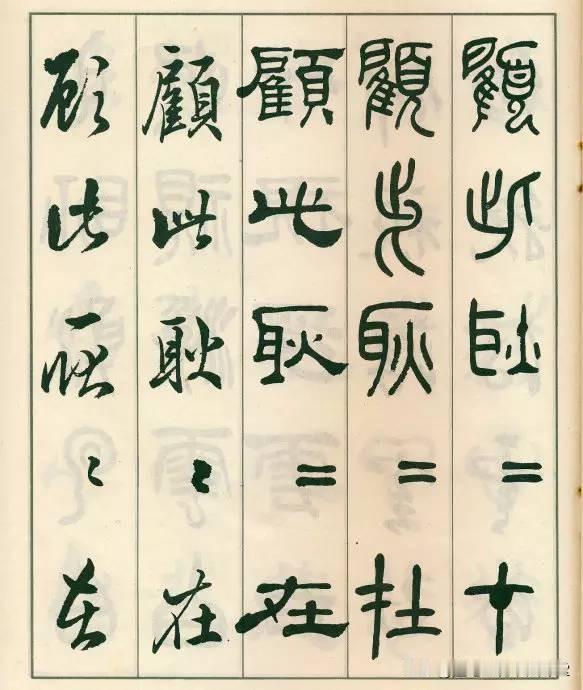 顧此耿=在
顧此耿=在
顧此耿=在
顧此耿〻在
顧此耿〻在